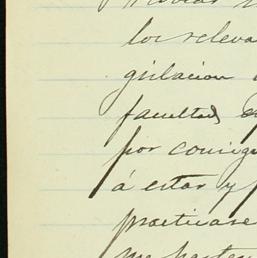 los releva
gislacion
facultad
por consig
á estar y
practicase
me hasten